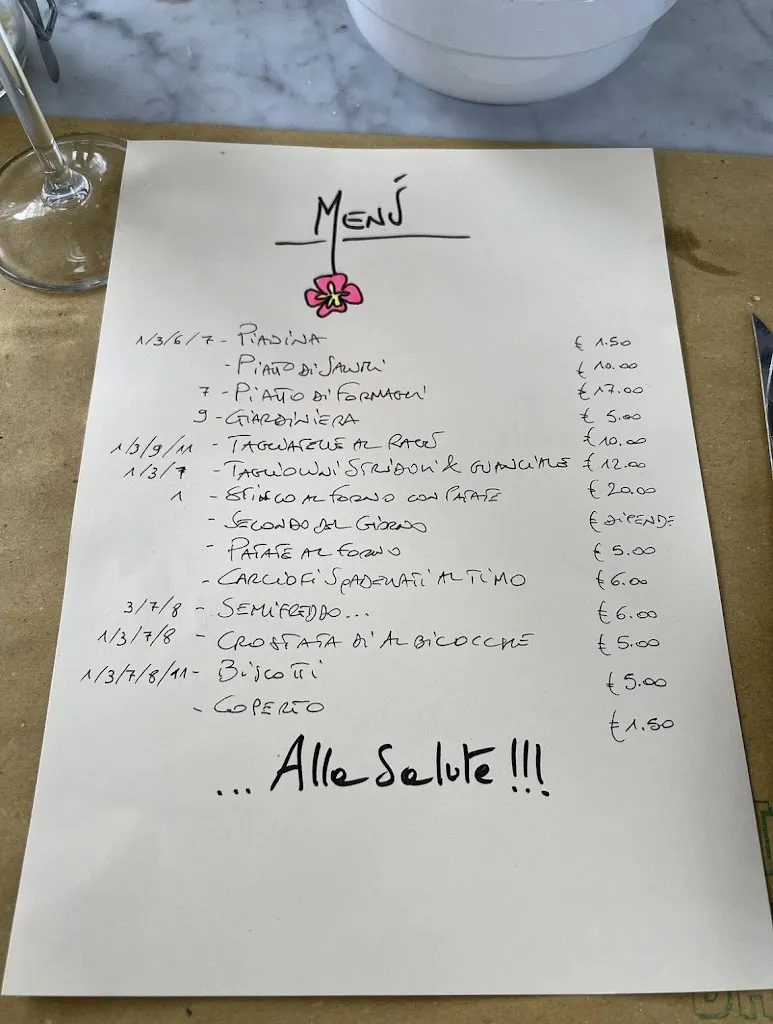 MENÚ
1/3/6/7 - PIADINA € 1.50
- PIATTO DI SALUMI € 10.00
7 - PIATTO DI FORMAGGI € 17.00
9 - GIARDINIERA € 5.00
1/3/9/11 - TAGLIATELLE AL RAGÚ € 10.00
1/3/7 - TAGLIOLINI STRIDOLI & GUANCIALE € 12.00
1 - STINCO AL FORNO CON PATATE € 20.00
- SECONDO DEL GIORNO € DIPENDE
- PATATE AL FORNO € 5.00
- CARCIOFI SPADELLATI AL TIMO € 6.00
3/7/8 - SEMIFREDDO... € 6.00
1/3/7/8 - CROSTATA DI ALBICOCCHE € 5.00
1/3/7/8/11 - BISCOTTI € 5.00
- COPERTO € 1.50
... Alla Salute!!!